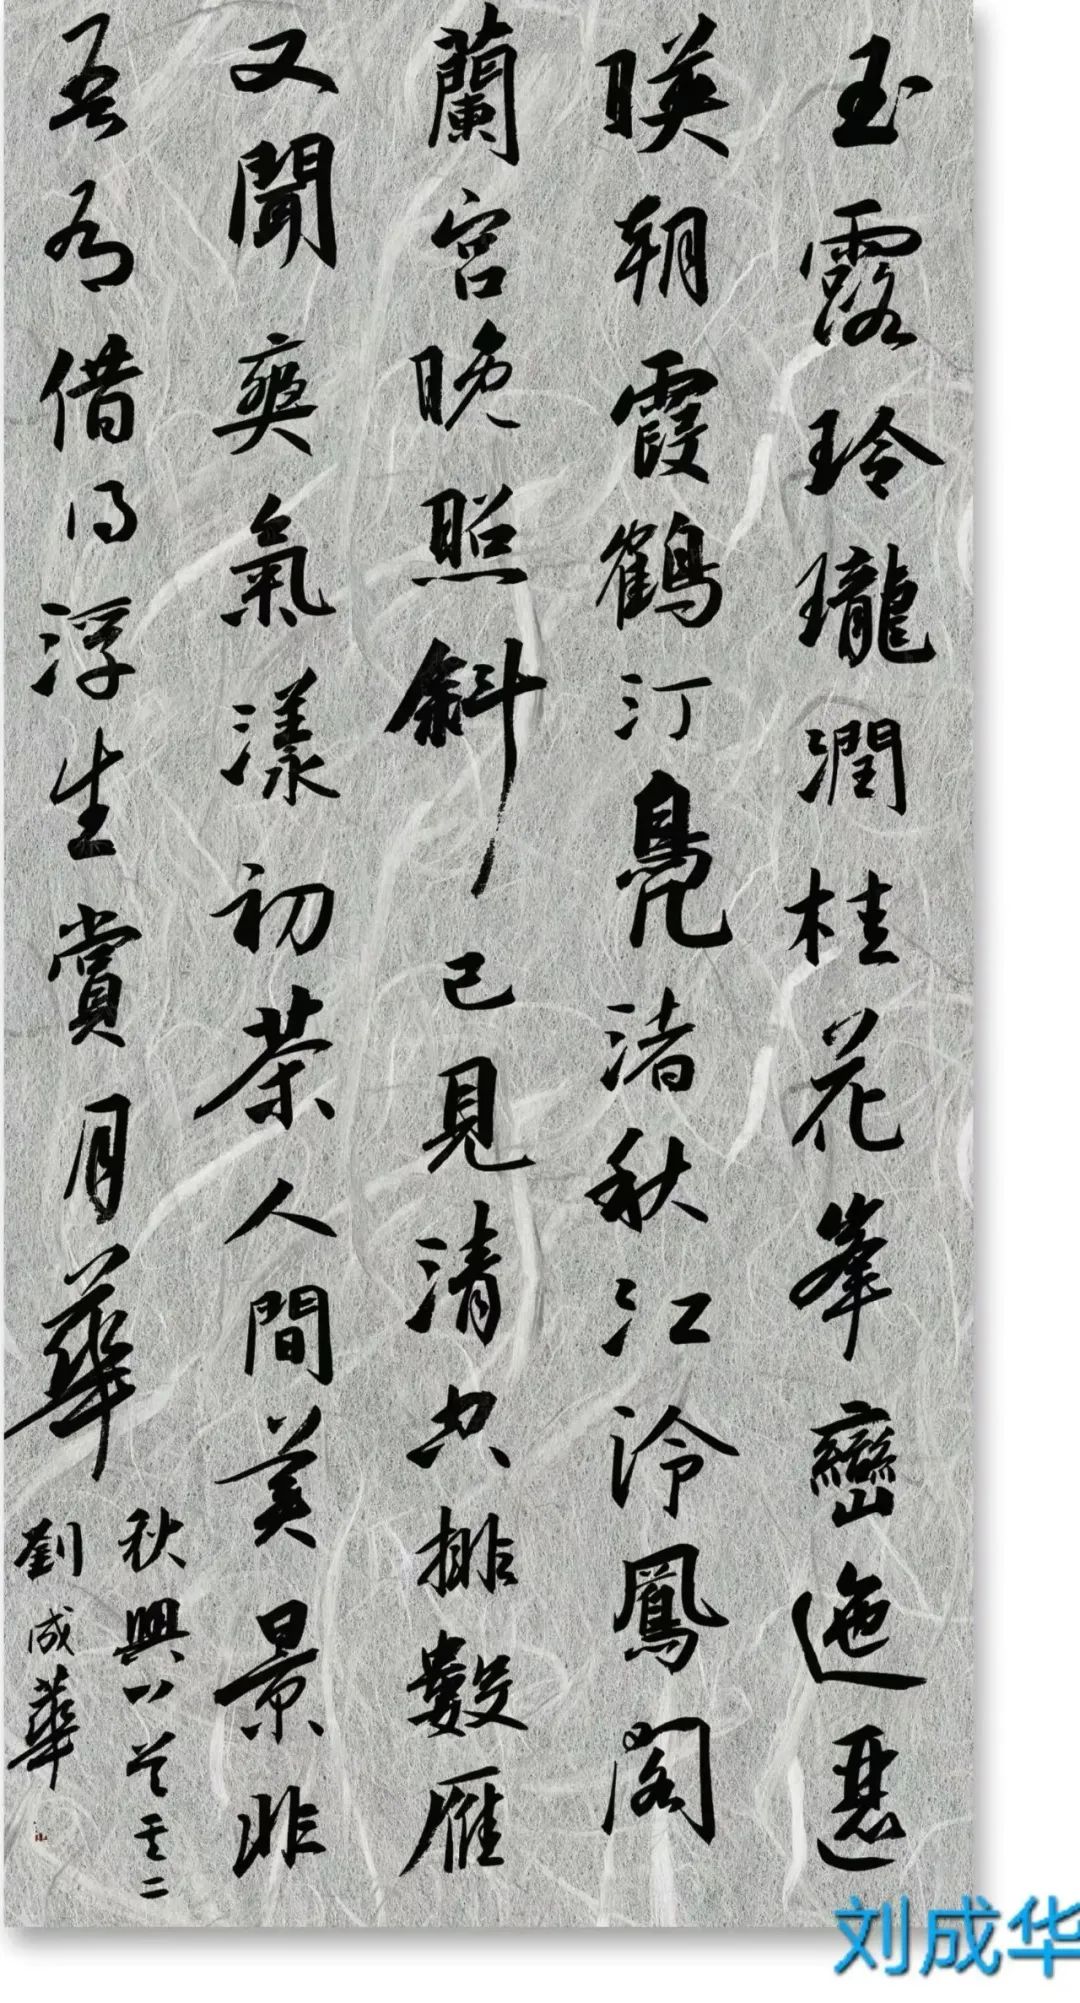 玉露玲瓏潤桂花峯巒迤邐
暎朝霞鶴汀鳧渚秋江泠鳳閣
蘭宮晚照斜已見清空排數雁
又聞爽氣漾初茶人間美景非
吾有借得浮生賞月華
秋興八首其二
劉成華
刘成华